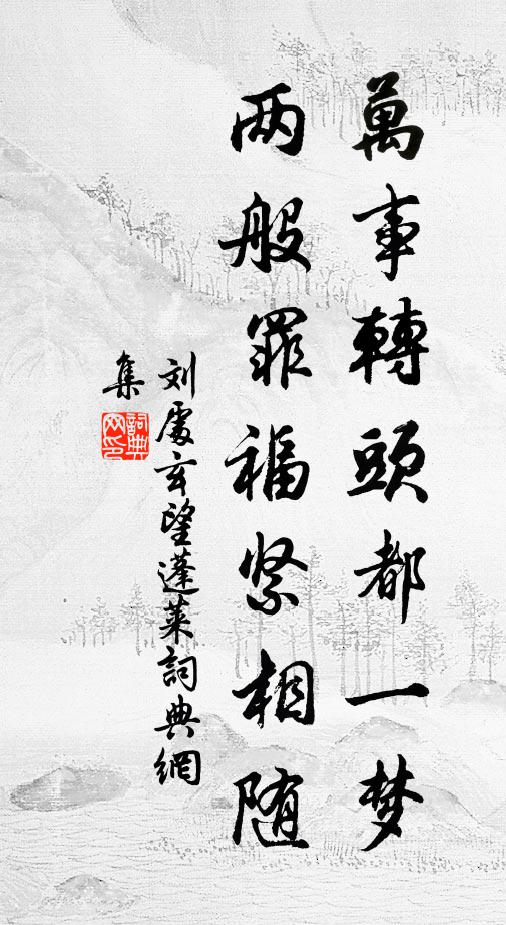 萬事轉頭都一梦
两般罪福紧相随
刘處玄望蓬莱詞典網
集
詞典网印